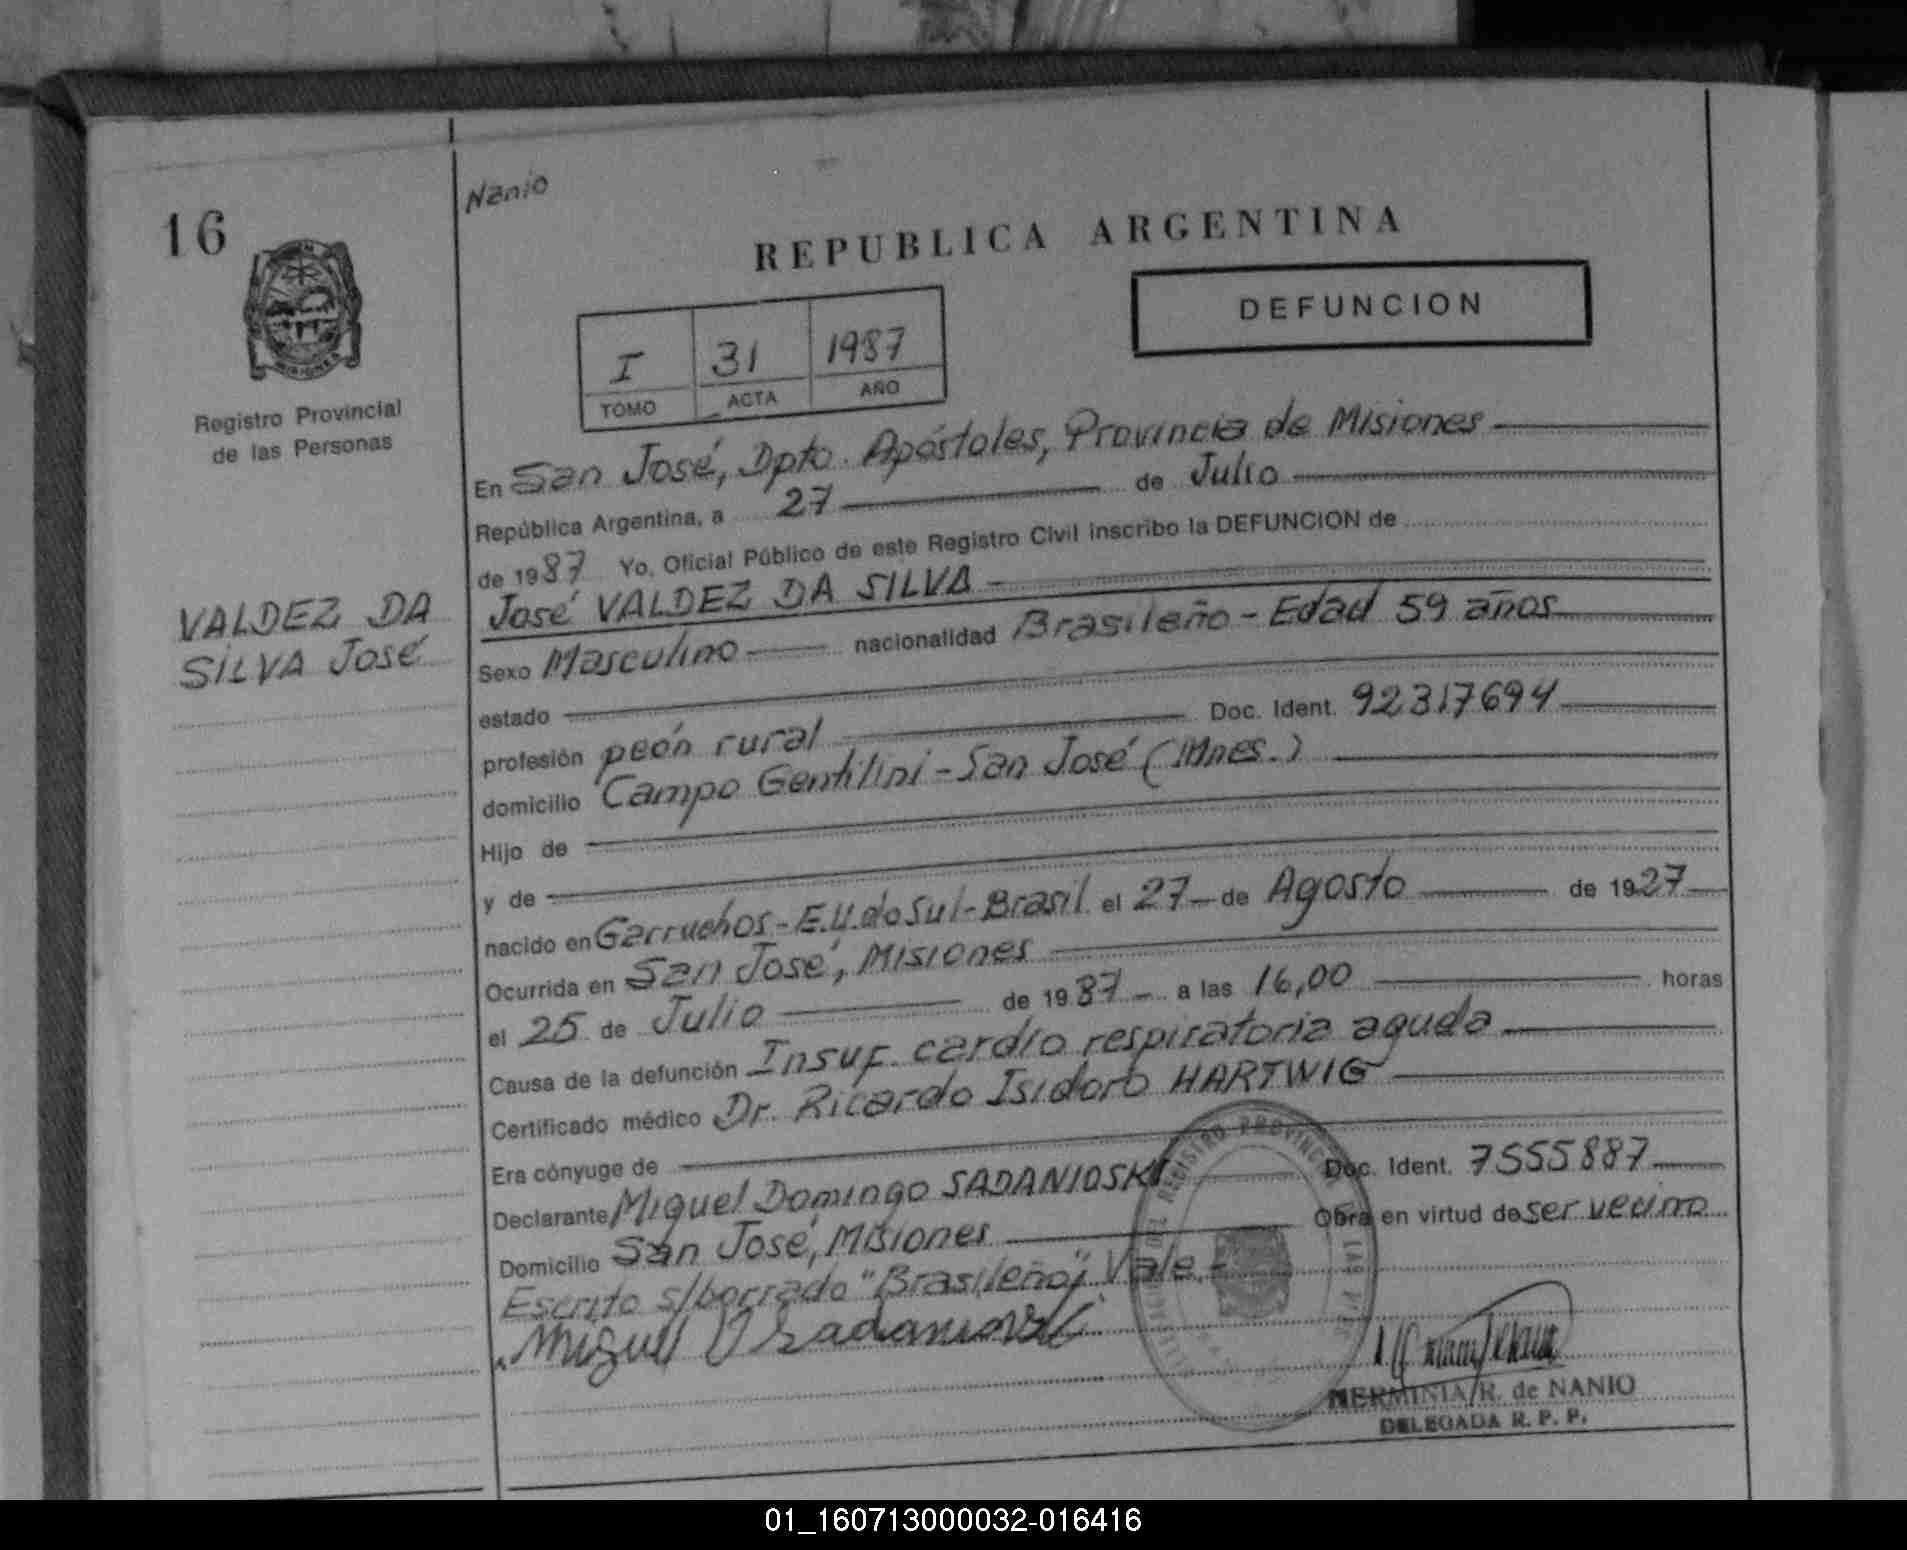 16
Nanio
REPUBLICA ARGENTINA
DEFUNCION
I 31 1987
TOMO ACTA AÑO
MISIONES
Registro Provincial
de las Personas
En San José, Dpto. Apóstoles, Provincia de Misiones
República Argentina, a 27 de Julio
de 1987 Yo, Oficial Público de este Registro Civil inscribo la DEFUNCION de
VALDEZ DA
SILVA José
José VALDEZ DA SILVA
Sexo Masculino nacionalidad Brasileño - Edad 59 años
estado
profesión peón rural Doc. Ident. 92317694
domicilio Campo Gentilini - San José (Mnes.)
Hijo de
y de
nacido en Garruchos - E.U. do Sul - Brasil el 27 de Agosto de 1927
Ocurrida en San José, Misiones
el 25 de Julio de 1987 a las 16,00 horas
Causa de la defunción Insuf. cardio respiratoria aguda
Certificado médico Dr. Ricardo Isidoro HARTWIG
Era cónyuge de
Declarante Miguel Domingo SADANIOSKI Doc. Ident. 7555887
Domicilio San José, Misiones Obra en virtud de ser vecino
Escrito s/borrado "Brasileño". Vale.-
Miguel D Sadanioski
REGISTRO PROVINCIAL DE LAS
HERMINIA R. de NANIO
DELEGADA R. P. P.
01_160713000032-016416